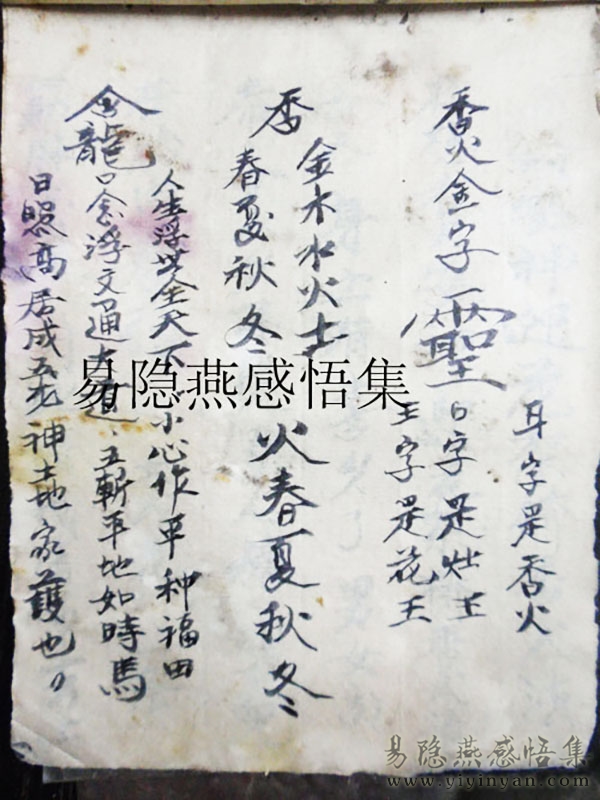 耳字是香火
香火金字
口字是灶王
王字是花王
香
金木水火土
春夏秋冬
火春夏秋冬
龕
人生浮世全天下 小心作平种福田
口念浮文通 、五斬平地如時馬
日照高居成五 神土地家護也。
易隐燕感悟集
易隐燕感悟集
www.yiyinyan.com